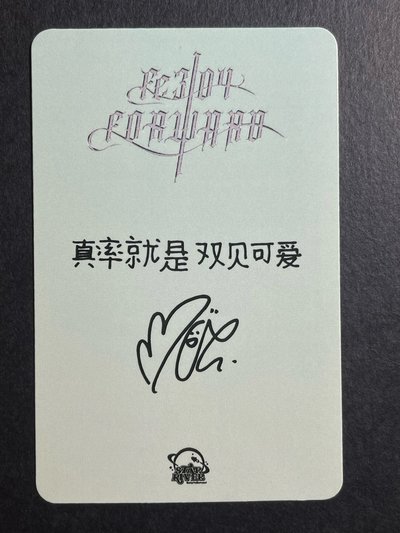 FE3O4
FORWARD
真率就是 双贝可爱
STAR
RIVER